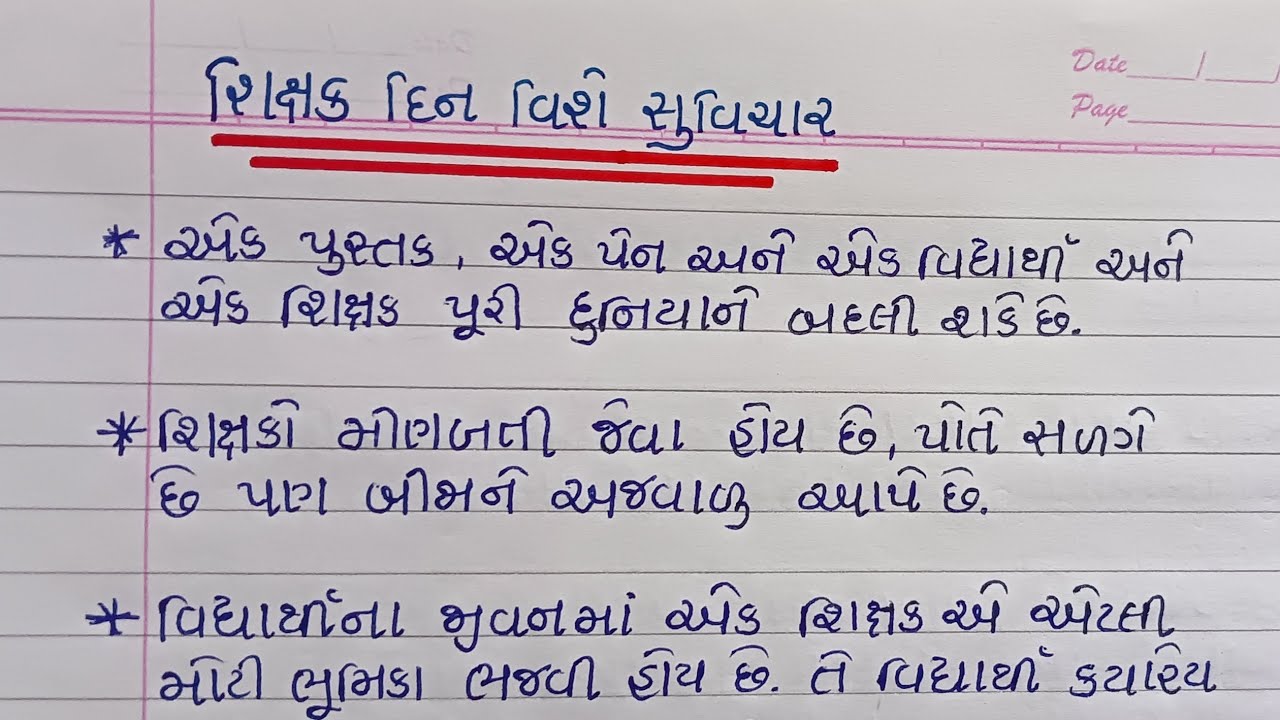 Date ___/___/
Page
શિક્ષક દિન વિશે સુવિચાર
* એક પુસ્તક, એક પેન અને એક વિદ્યાર્થી અને
એક શિક્ષક પૂરી દુનિયાને બદલી શકે છે.
* શિક્ષકો મીણબતી જેવા હોય છે, પોતે સળગે
છે પણ બીજાને અજવાળુ આપે છે.
* વિદ્યાર્થીના જીવનમાં એક શિક્ષક એ એટલી
મોટી ભૂમિકા ભજવી હોય છે. તે વિદ્યાર્થી કયારેય